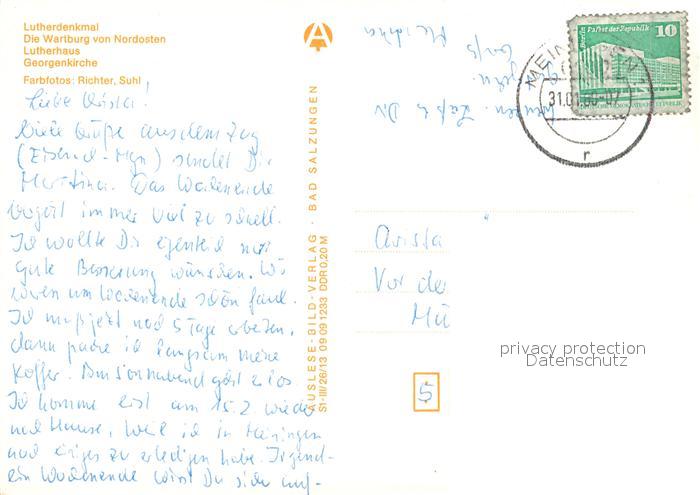 Lutherdenkmal
Die Wartburg von Nordosten
Lutherhaus
Georgenkirche
Farbfotos: Richter, Suhl
Liebe
Viele Grüße aus dem Zug
(Eisenach-Mgn) sendet Dir
Martina. Das Wochenende
vergeht immer viel zu schnell.
Ich wollte Dir eigentlich nur
gute Besserung wünschen. Wir
waren am Wochenende schön
Ich muß jetzt noch 5 Tage arbeiten,
dann packe ich langsam meine
Koffer. Am Sonnabend geht's los
Ich komme erst am 15.2. wieder
nach Hause, weil ich in Meiningen
noch einiges zu erledigen habe. Irgend-
ein Wochenende wirst Du sicher
AUSLESE-BILD-VERLAG · BAD SALZUNGEN
St-III/26/13 09 09 1233 DDR 0,20 M
Berlin Palast der Republik 10
DEUTSCHE DEMOKRATISCHE REPUBLIK
MEININGEN
r
Vor de
Mü
5
privacy protection
Datenschutz